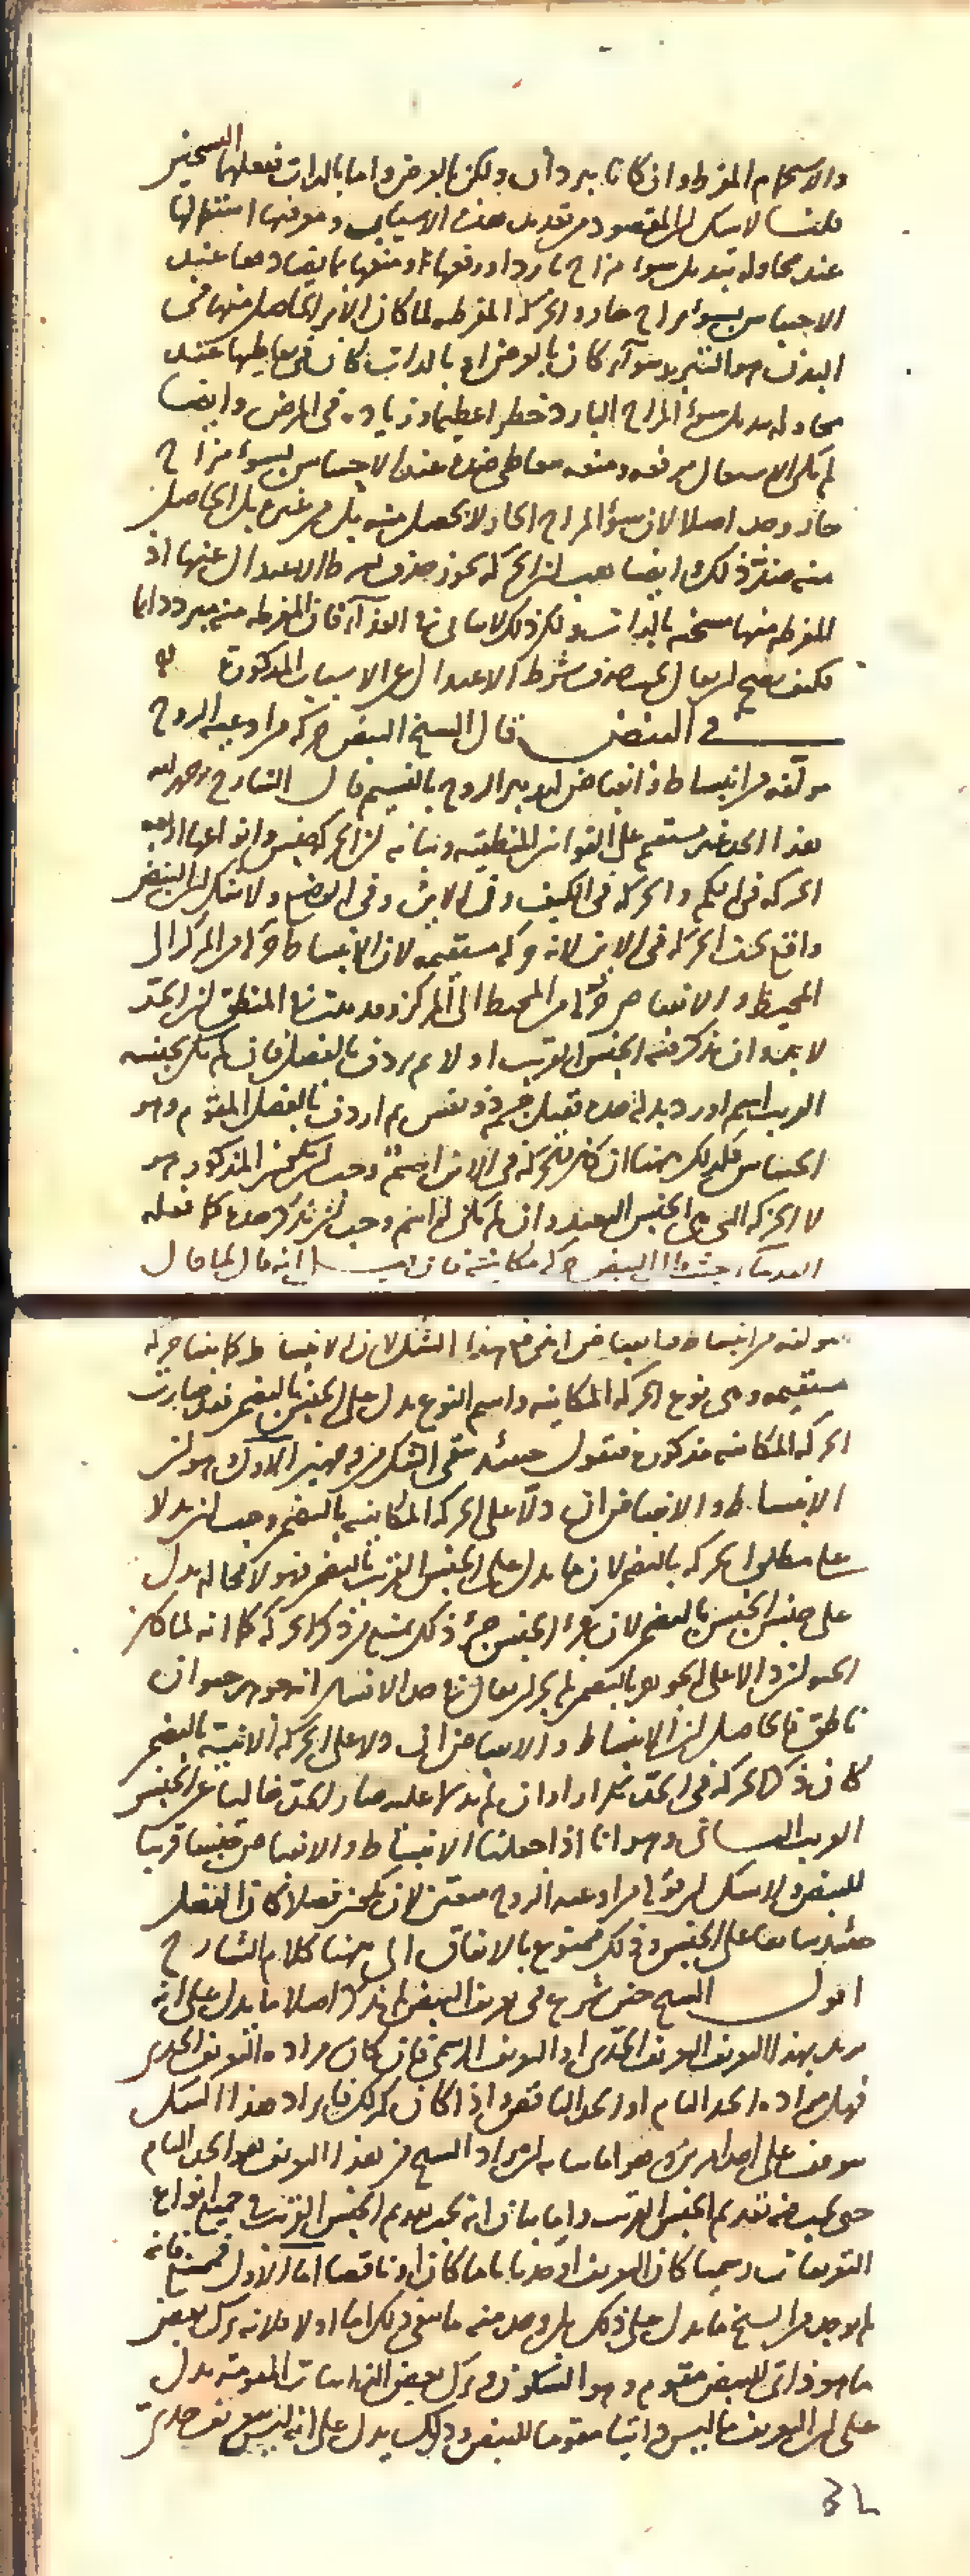 والاستحمام المفرط وان كانا يبردان ولكن بالعرض واما بالذات ففعلهما التسخين
قلنا لا شك ان المقصود من تعديل هذه الاسباب ومعرفتها استعمالها
عند محاولة تبديل سوء مزاج بارد او رفعها ومنعها بما يضادها عند
الاحساس بسوء مزاج حار والحركة المفرطة لما كان الامر الحاصل منها فى
البدن هو التبريد سواء كان بالعرض او بالذات كان فى تعاطيها عند
محاولة تبديل سوء المزاج البارد خطر اعظيما وزيادة فى المرض وايضا
لم يكن الاشتغال برفعه ومنعه تعاطى ضده عند الاحساس بسوء مزاج
حار وجه اصلا لان سوء المزاج الحار لا يحصل منه بل من غيره بل الحاصل
منه ضد ذلك وايضا يجب ان الحركة يجوز حذف شرط الاعتدال عنها اذ
المفرطة منها مسخنة بالذات ولكن ذلك لا يتاتى فى الغذاء فان المفرط منه مبرد دائما
فكيف يصح ان يقال يجب حذف شرط الاعتدال عن الاسباب المذكورة
فى النبض قال الشيخ النبض حركة من اوعية الروح
مؤلفة من انبساط وانقباض لتدبير الروح بالنسيم قال الشارح رحمه الله
هذا الحد غير مستقيم على القوانين المنطقية وبيانه ان الحركة جنس وانواعها اربعة
الحركة فى الكم والحركة فى الكيف وفى الاين وفى الوضع ولا شك ان النبض
واقع تحت الحركة فى الاين لانه حركة مستقيمة لان الانبساط حركة من المركز الى
المحيط والانقباض حركة من المحيط الى المركز وقد بينت فى المنطق ان الحد
لا بد وان يذكر فيه الجنس القريب اولا ثم يردف بالفصل فان لم يكن لجنسه
القريب اسم اورد بدله حده فقيل جسم ذو نفس ثم اردف بالفصل المقوم وهو
الحساس فكذلك هاهنا ان كان للحركة فى الاين اسم وجب ان يكون المذكور هو
لا الحركة التى هى الجنس البعيد وان لم يكن لها اسم وجب ان يذكر حده كما فعله
القدماء حيث قالوا النبض حركة مكانية فان قيل انه قال لما قال
مؤلفة من انبساط وانقباض اندفع هذا الشك لان الانبساط والانقباض حركة
مستقيمة وهى نوع الحركة المكانية واسم النوع يدل على الجنس بالتضمن فقد صارت
الحركة المكانية مذكورة فنقول حينئذ يبقى الشك من وجهين الاول هو ان
الانبساط والانقباض ان دلا على الحركة المكانية بالتضمن وجب ان يدلا
على مطلق الحركة بالتضمن لان ما يدل على الجنس القريب بالتضمن فهو لا محالة يدل
على جنس الجنس بالتضمن لان جزء الجنس جزء ذلك يمنع من ذكر الحركة كما انه لما كان
الحيوان دالا على الجوهر بالتضمن لم يجز ان يقال فى حد الانسان انه جوهر حيوان
ناطق فالحاصل ان الانبساط والانقباض ان دلا على الحركة الاينية بالتضمن
كان ذكر الحركة فى الحد تكرارا وان لم يدلا عليه صار الحد خاليا عن الجنس
القريب الثانى وهو انا اذا جعلنا الانبساط والانقباض جنسا قريبا
للنبض ولا شك ان قوله من اوعية الروح متعين لان يكون فصلا كان الفصل
حينئذ سابقا على الجنس وذلك ممنوع بالاتفاق الى هاهنا كلام الشارح
اقول الشيخ حين شرع فى تعريف النبض لم يذكر اصلا ما يدل على انه
يريد بهذا التعريف التعريف الحدى او التعريف الرسمى فان كان مراده التعريف الحدى
فهل مراده الحد التام او الحد الناقص واذا كان كذلك فايراد هذا الشك
موقوف على احد امرين وهو اما بيان ان مراد الشيخ من هذا التعريف هو الحد التام
حتى يجب فيه تقديم الجنس القريب واما بيان انه يجب تقديم الجنس القريب فى جميع انواع
التعريفات رسميا كان التعريف او حديا تاما كان او ناقصا اما الاول فممنوع فانه
لم يوجد من الشيخ ما يدل على ذلك بل وجد منه ما ينفى ذلك اما اولا فلانه ترك بعض
ما هو ذاتى للنبض مقوم وهو السكون وترك بعض الذاتيات المقومة يدل
على ان التعريف ما ليس ذاتيا مقوما للنبض وذلك يدل على انه ليس تعريف حدى